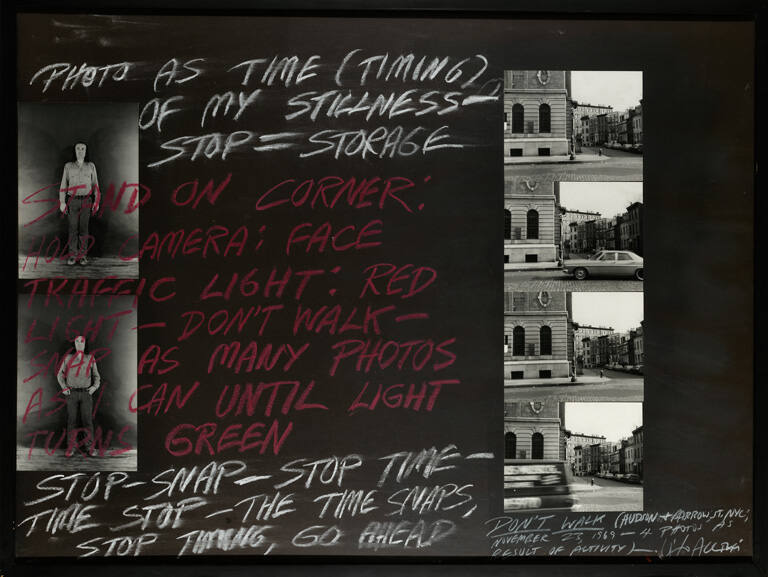 PHOTO AS TIME (TIMING)
OF MY STILLNESS—
STOP = STORAGE
STAND ON CORNER:
HOLD CAMERA; FACE
TRAFFIC LIGHT: RED
LIGHT — DON'T WALK —
SNAP AS MANY PHOTOS
AS I CAN UNTIL LIGHT
TURNS GREEN
STOP—SNAP—STOP TIME—
TIME STOP—THE TIME SNAPS,
STOP TIMING, GO AHEAD
DON'T WALK (HUDSON + BARROW ST, NYC;
NOVEMBER 23, 1969 — 4 PHOTOS AS
RESULT OF ACTIVITY) — Vito Acconci